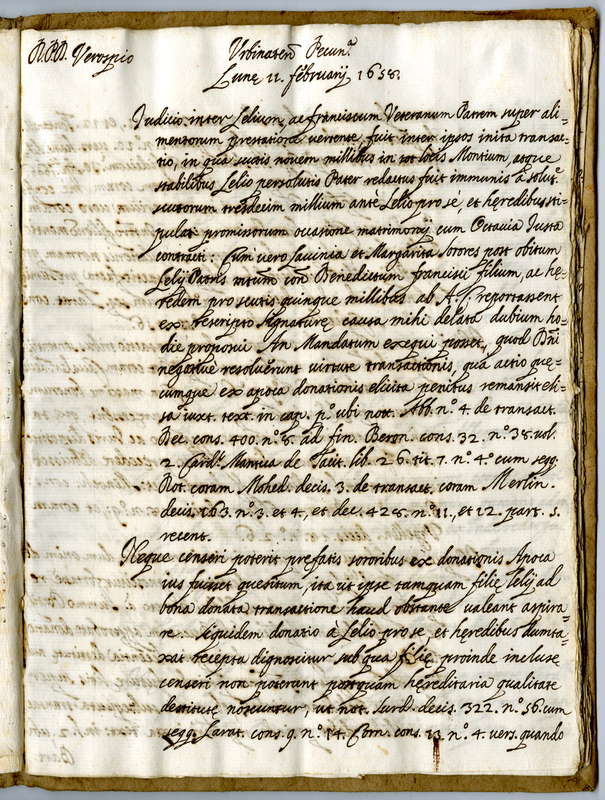 R.P.D. Verospio
Urbinaten Pecun.ª
Lunę 11. februarij 1658.
Judicio inter Lelium, ac franciscum Veteranum Patrem super ali=
mentorum prestatione vertente fuit inter ipsos inita transac=
tio, in qua scutis novem millibus in tot locis Montium, atque
stabilibus Lelio persolutis Pater redactus fuit immunis à solut.e
scutorum tresdecim millium ante Lelio pro se, et hęredibus sti=
pulat. promissorum occasione matrimonij cum Octavia Justa
contracti: Cum vero Lavinia et Margarita sorores post obitum
Lelij Patris mtum con Benedictum francisci filium, ac hę=
redem pro scutis quinque millibus ab A. C. reportassent
ex rescripto signaturę causa mihi delata dubium ho=
die proposui An Mandatum exequi posset, quod Dñi
negative resolverunt virtute transactionis, qua actio quę=
cumque ex apoca donationis elicita penitus remansit eli=
sa iuxt. text. in cap. p.º ubi nott. Abb. n.º 4. de transact.
Bec. cons. 400. n.º 8. ad fin. Beron. cons. 32. n.º 38. vol.
2. Card.l Mantica de Tacit. lib. 26. tit. 7. n.º 4.º cum seqq.
Rot. coram Mohed. decis. 3. de transact. coram Merlin.
decis. 163. n.º 3. et 4, et dec. 428. n.º 11., et 12. part. 5.
recent.
Neque censeri poterit prefatis sororibus ex donationis Apoca
ius fuisset quesitum, ita ut ipse tamquam filię Lelij ad
bona donata transactione haud obstante valeant aspira=
re. Siquidem donatio à Lelio pro se, et heredibus dumta=
xat recepta dignoscitur sub qua filię proinde incluse
censeri non poterant postquam hęreditaria qualitate
destitute noscuntur, ut not. Surd. decis. 322. n.º 56. cum
seqq. Larat. cons. 9. n.º 14. Corn. cons. 13. n.º 4. vers. quando